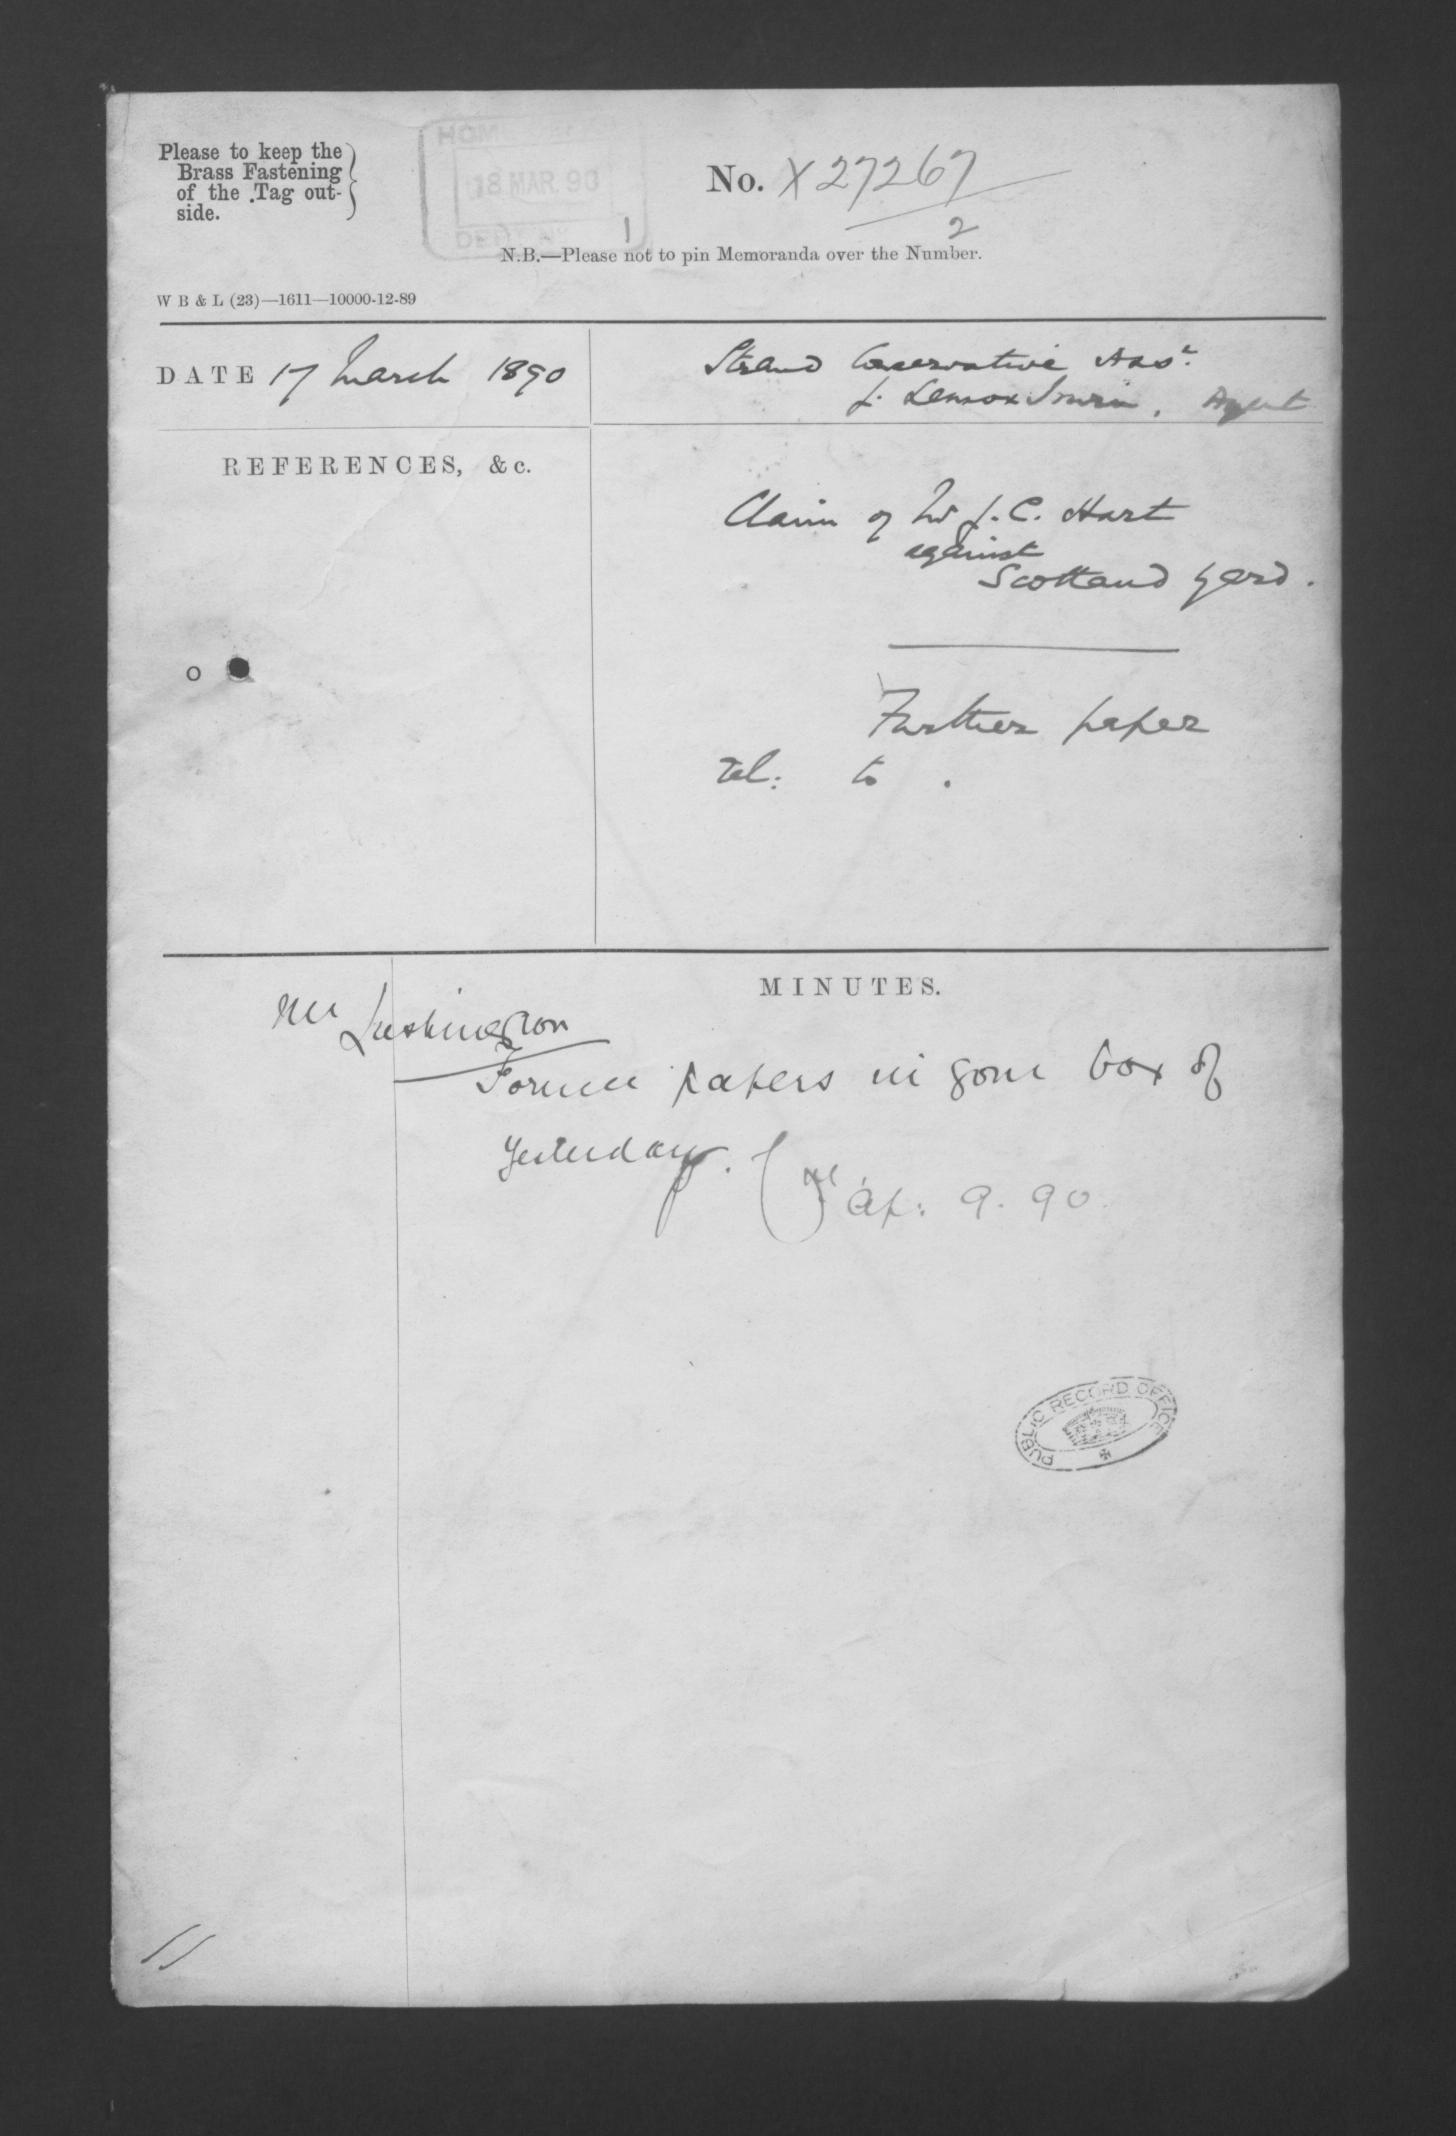 Please to keep the
Brass Fastening
of the Tag out-
side.
HOME OFFICE
18 MAR. 90
DEPT. No.
1
No. X27267
2
N.B.—Please not to pin Memoranda over the Number.
W B & L (23)—1611—10000-12-89
DATE 17 March 1890
Strand Conservative Assn.
J. Lennox Irwin, Agent
REFERENCES, &c.
Claim of Mr J. C. Hart
against
Scotland Yard.
Further paper
rel: to.
MINUTES.
Mr Lushington
Former papers in your box of
yesterday.
Ap: 9. 90.
PUBLIC RECORD OFFICE